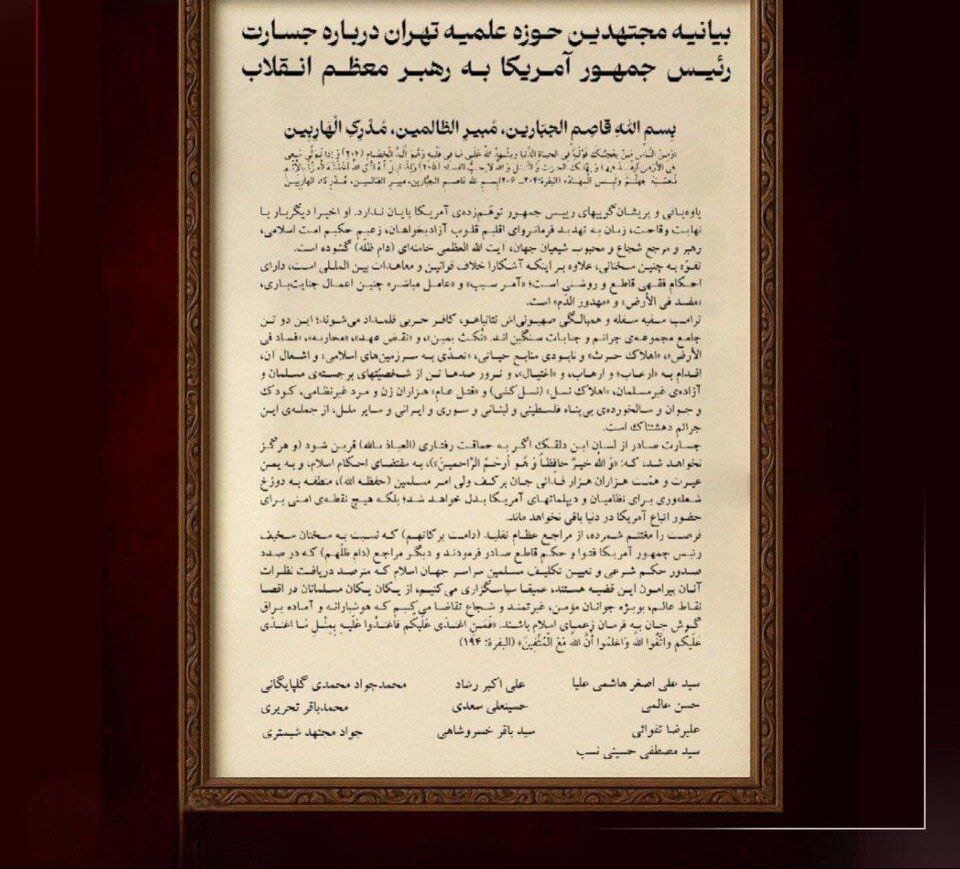 بیانیه مجتهدین حوزه علمیه تهران درباره جسارت
رئیس جمهور آمریکا به رهبر معظم انقلاب
بِسمِ اللهِ قاصِمِ الجَبّارین، مُبیرِ الظّالمین، مُدْرِکِ الْهارِبین
یاوه‌بافی و پریشان‌گویی‌های رییس جمهور توهّم‌زده‌ی آمریکا پایان ندارد. او اخیرا دیگربار با
نهایت وقاحت، زبان به تهدید فرمانروای اقلیم قلوب آزادیخواهان، زعیم حکیم امت اسلامی،
رهبر و مرجع شجاع و محبوب شیعیان جهان، آیت الله العظمی خامنه‌ای (دام ظلّه) گشوده است.
تفوّه به چنین سخنانی، علاوه بر اینکه آشکارا خلاف قوانین و معاهدات بین المللی است، دارای
احکام فقهی قاطع و روشنی است؛ «آمر سبب» و «عامل مباشر» چنین اعمال جنایت‌باری،
«مفسد فی الأرض» و «مهدور الدّم» است.
ترامپ سفیه سفله و همپالگی صهیونی‌اش نتانیاهو، کافر حربی قلمداد می‌شوند؛ این دو تن
جامع مجموعه‌ی جرائم و جنایات سنگین اند. «نکث یمین»، و «نقض عهد»، «محاربه»، «فساد فی
الأرض»، «اهلاک حرث» و نابودی منابع حیاتی، «تعدّی به سرزمین‌های اسلامی» و اشغال آن،
اقدام به «ارعاب» و ارهاب، و «اغتیال»، و ترور صدها تن از شخصیّتهای برجسته‌ی مسلمان و
آزاده‌ی غیرمسلمان، «اهلاک نسل» (نسل‌کشی) و «قتل عام» هزاران زن و مرد غیرنظامی، کودک
و جوان و سالخورده‌ی بی‌پناه فلسطینی و لبنانی و سوری و ایرانی و سایر ملل، از جمله‌ی این
جرائم دهشتناک است.
جسارت صادر از لسان این دلقک اگر به حماقت رفتاری (العیاذ بالله) قرین شود (و هرگز
نخواهد شد، که: «وَ الله خیرٌ حافظاً وَ هُوَ أرحَمُ الرّاحِمینَ»)، به مقتضای احکام اسلام، و به یمن
غیرت و همّت هزاران هزار فدائی جان برکف ولی امر مسلمین (حفظه الله)، منطقه به دوزخ
شعله‌وری برای نظامیان و دیپلماتهای آمریکا بدل خواهد شد؛ بلکه هیچ نقطه‌ی امنی برای
حضور اتباع آمریکا در دنیا باقی نخواهد ماند.
فرصت را مغتنم شمرده، از مراجع عظام تقلید (دامت برکاتهم) که نسبت به سخنان سخیف
رئیس جمهور آمریکا فتوا و حکم قاطع صادر فرمودند و دیگر مراجع (دام ظلّهم) که در صدد
صدور حکم شرعی و تعیین تکلیف مسلمین سراسر جهان اسلام که مترصد دریافت نظرات
آنان پیرامون این قضیه هستند، عمیقا سپاسگزاری می‌کنیم، از یکان یکان مسلمانان در اقصا
نقاط عالم، بویژه جوانان مؤمن، غیرتمند و شجاع تقاضا می‌کنیم که هوشیارانه و آماده براق
گوش جان به فرمان زعمای اسلام باشند. «فَمَنِ اعْتَدَى عَلَیْکُم فَاعْتَدُوا عَلَیْهِ بِمِثْلِ مَا اعْتَدَى
عَلَیْکُم واتَّقُوا الله وَاعلَمُوا أنَّ الله مَعَ المُتَّقین» (البقرة: ۱۹۴)
سید علی اصغر هاشمی علیا علی اکبر رشاد محمدجواد محمدی گلپایگانی
حسن عالمی حسینعلی سعدی محمدباقر تحریری
علیرضا تقوائی سید باقر خسروشاهی جواد مجتهد شبستری
سید مصطفی حسینی نسب